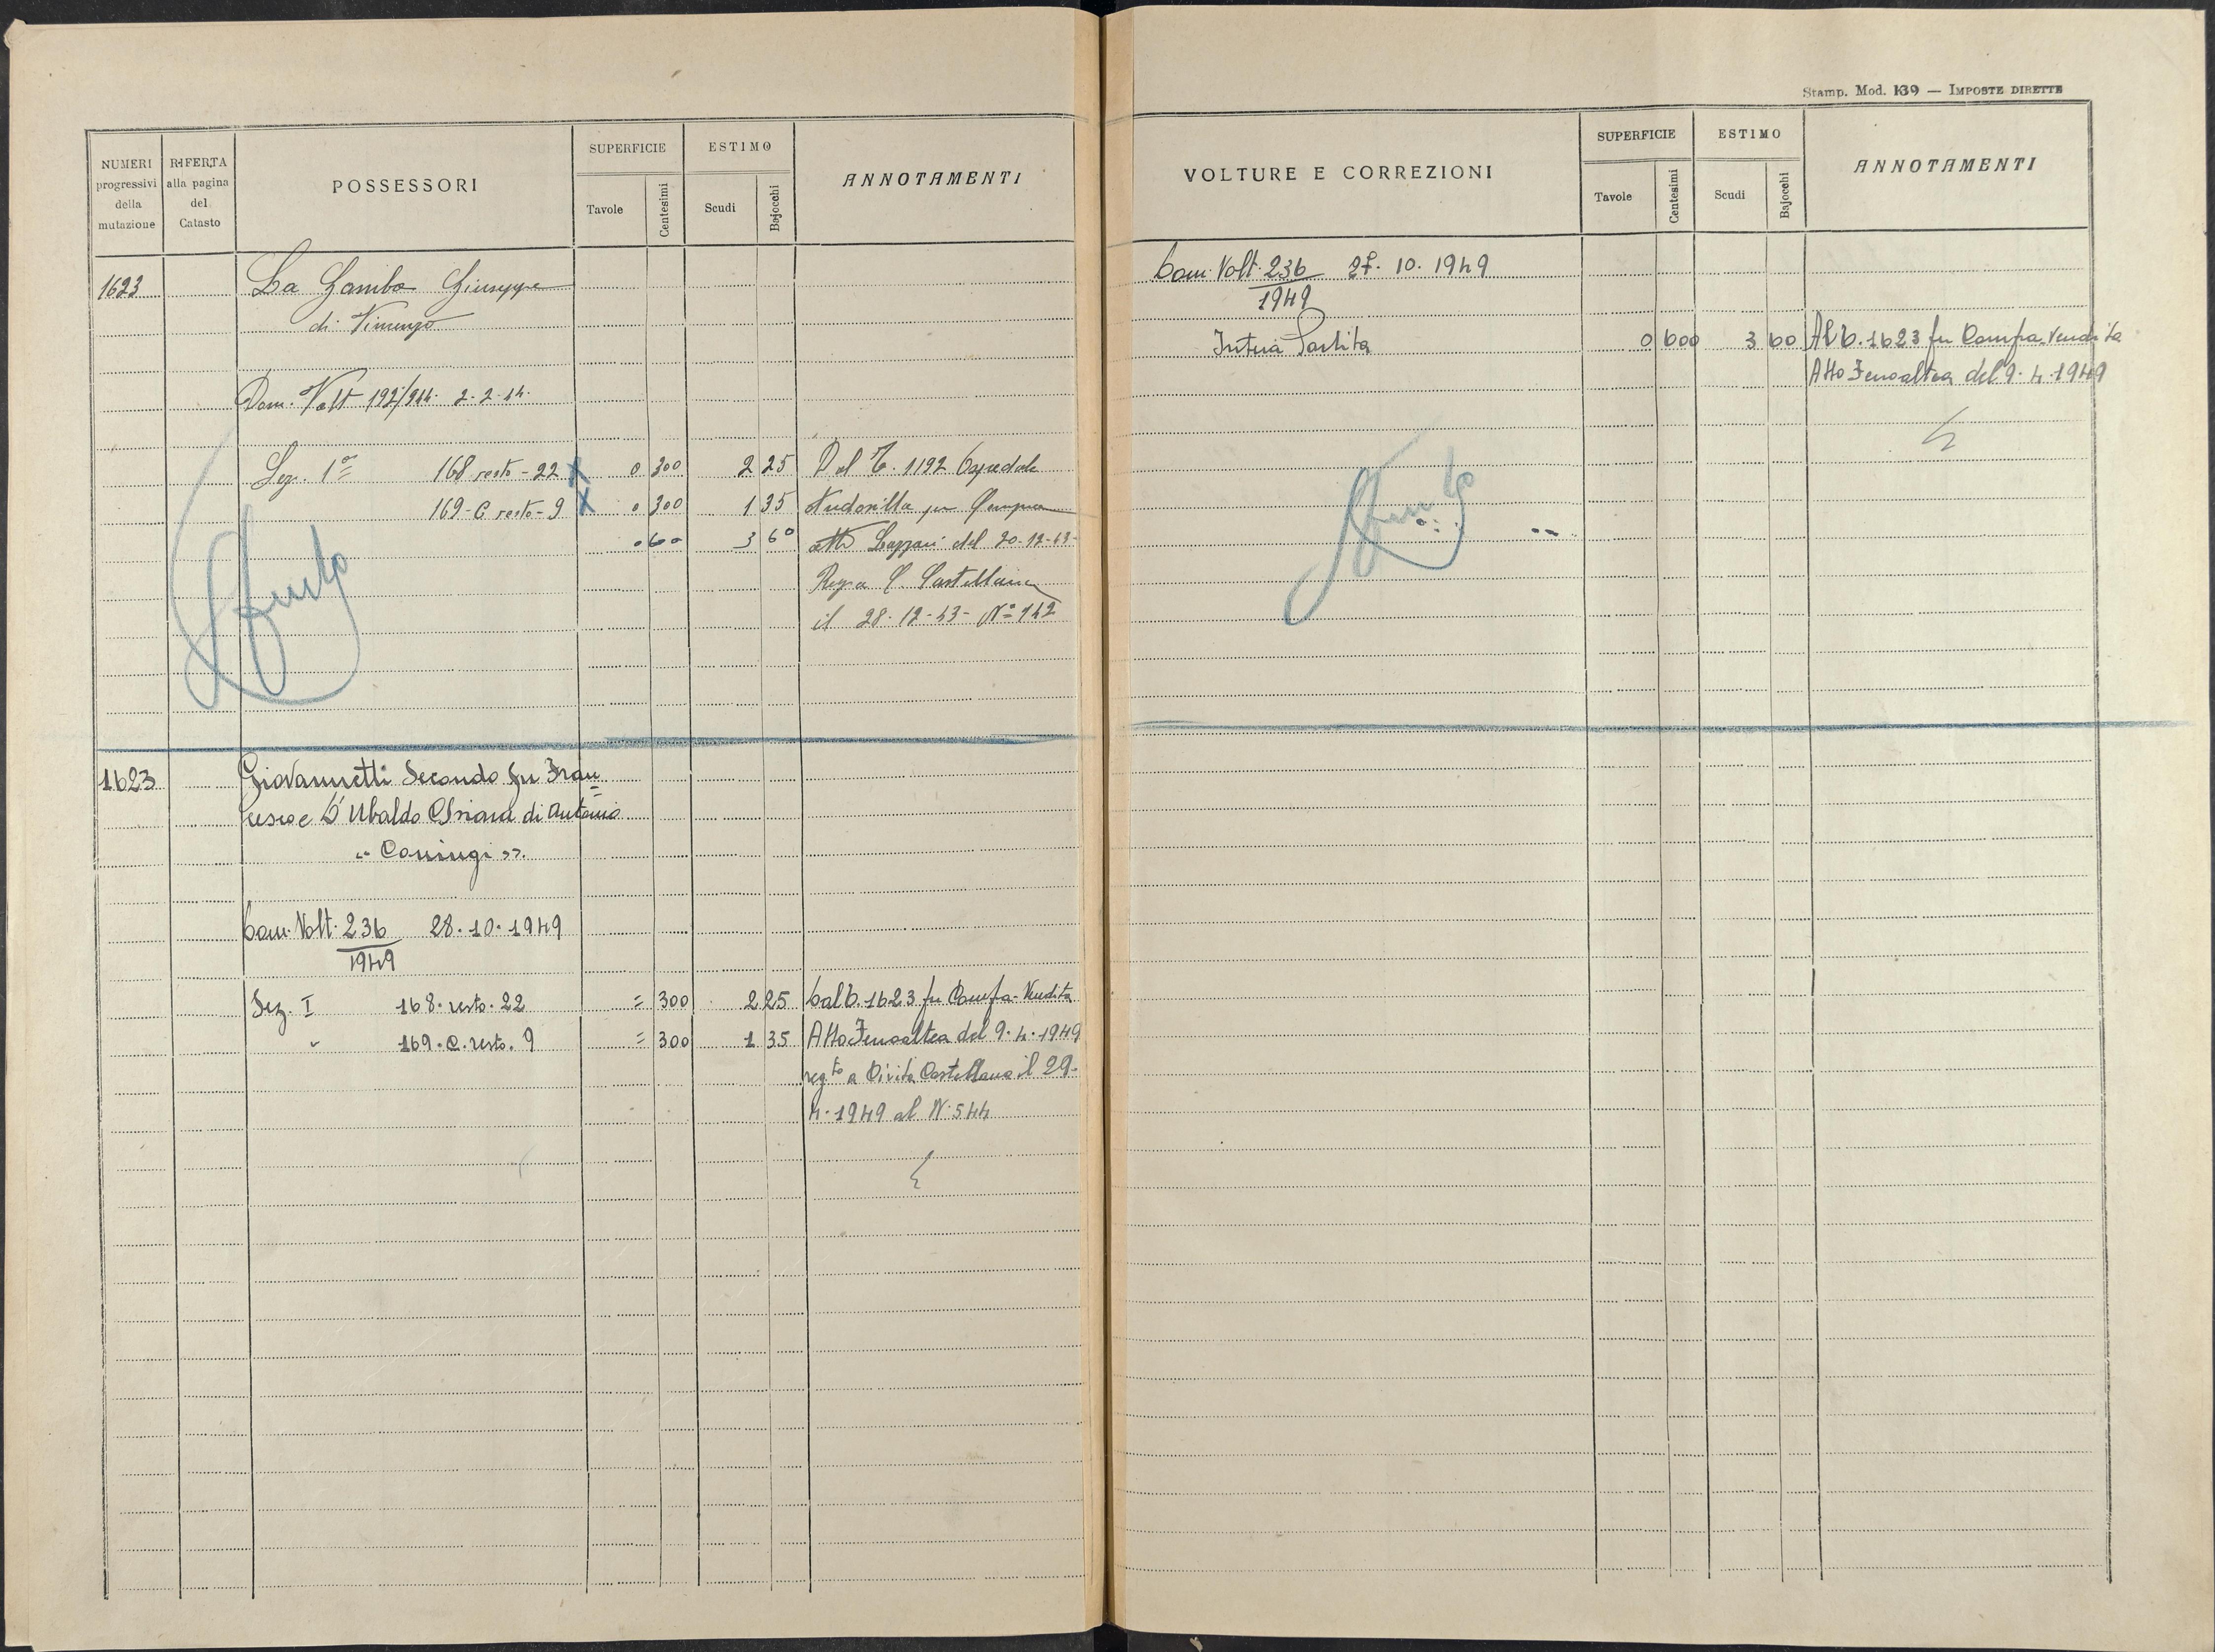 NUMERI progressivi della mutazione
RIFERTA alla pagina del Catasto
POSSESSORI
SUPERFICIE
Tavole
Centesimi
ESTIMO
Scudi
Bajocchi
ANNOTAMENTI
1623 La Gamba Giuseppe
di Vincenzo
Dom. Volt 192/944 2-2-44.
Sez. 1ª 168 resto - 22 0 300 2 25 Dal C. 1192 Ospedale
169-C resto - 9 0 300 1 35 per Compra
0 60 3 60 atto Lazzari del 20-12-43-
Reg a C. Castellana
il 28-12-43- Nº 142
1623 Giovannetti Secondo fu Fran=
cesco e D'Ubaldo Oriana di Antonio
"Coniugi".
Dom. Volt. 236 28.10.1949
1949
Sez. I 168. resto. 22 = 300 2 25 Dal C. 1623 per Compra-Vendita
" 169. C. resto. 9 = 300 1 35 Atto Fenoaltea del 9.4.1949
reg.to a Civita Castellana il 29.
4.1949 al N. 544
Stamp. Mod. 139 — IMPOSTE DIRETTE
VOLTURE E CORREZIONI
SUPERFICIE
Tavole
Centesimi
ESTIMO
Scudi
Bajocchi
ANNOTAMENTI
Dom. Volt. 236 27.10.1949
1949
Intera Partita 0 600 3 60 Al C. 1623 per Compra Vendita
Atto Fenoaltea del 9.4.1949